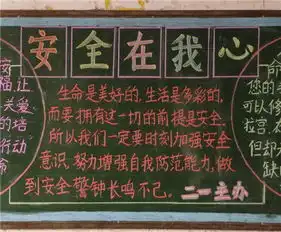 安全在我心
生命是美好的,生活是多彩的,
而要拥有这一切的前提是安全.
所以我们一定要时刻加强安全
意识,努力增强自我防范能力,做
到安全警钟长鸣不已.
二一主办
安
福让
关爱
的培
行动
命
命
您的
可以修
拉宫.
但却
缺